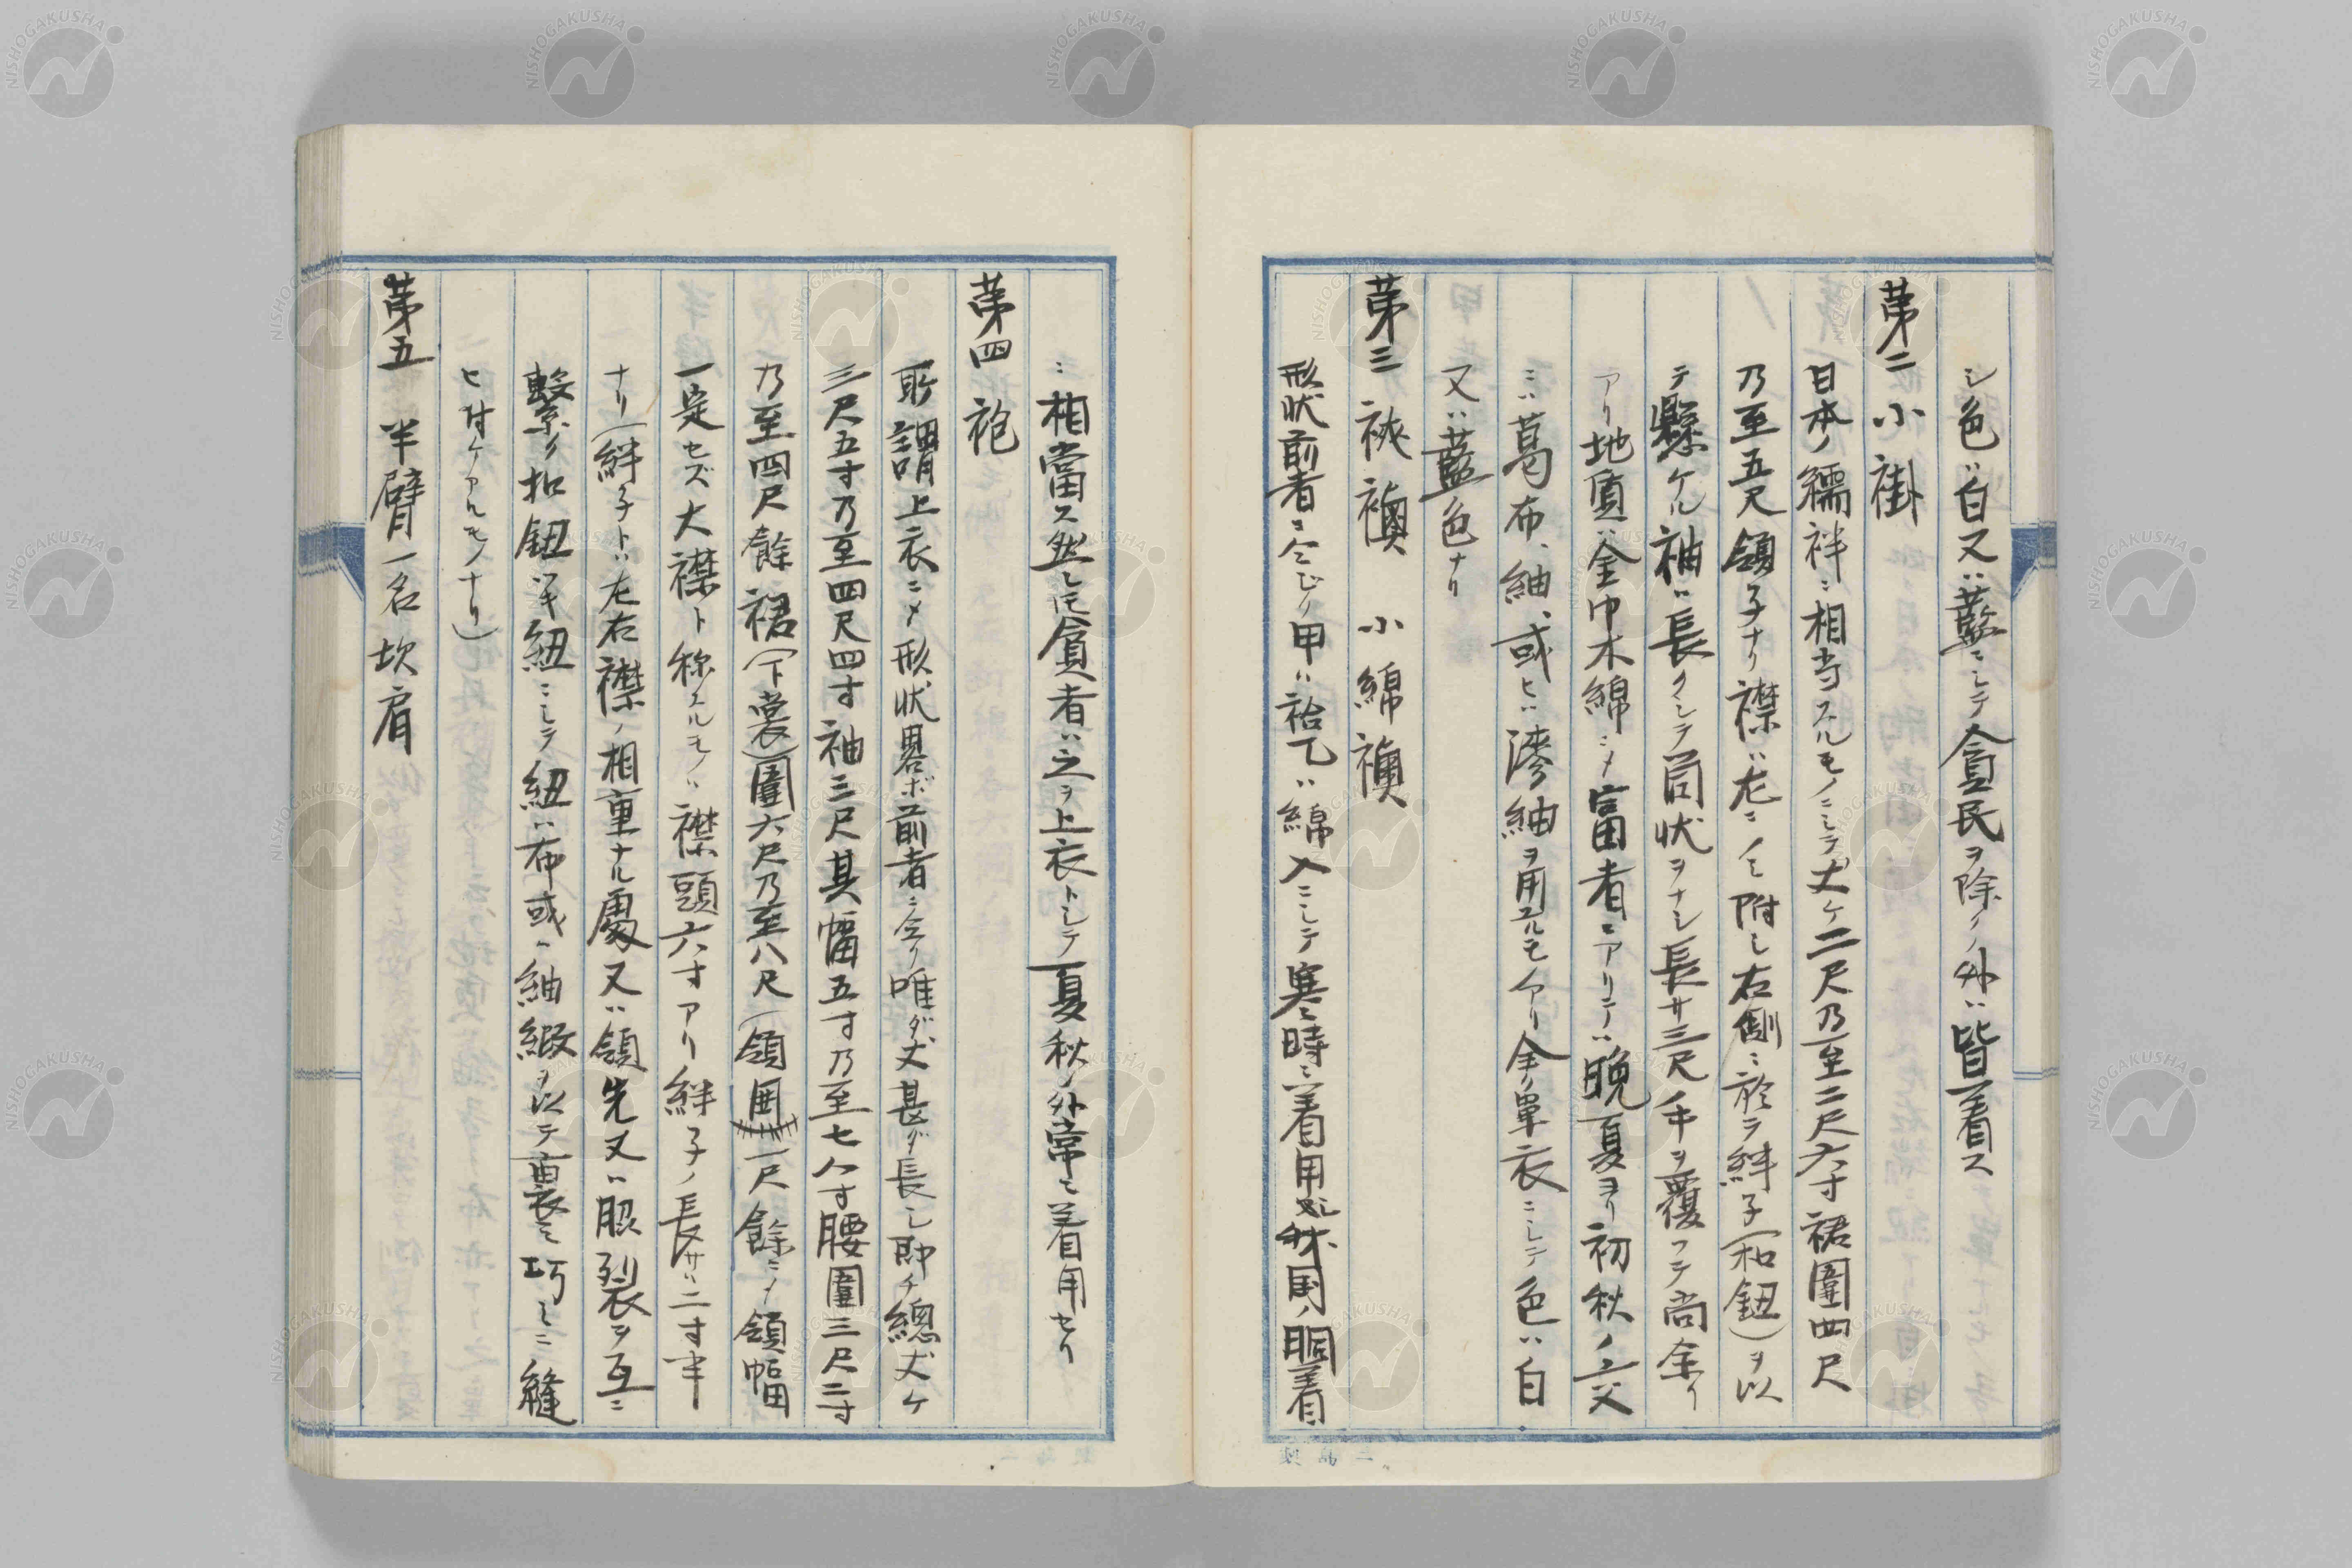 シ色ハ白又ハ藍ニシテ貪民ヲ除クノ外ハ皆着ス
第二 小褂
日本ノ繻袢ニ相当スルモノニシテ丈ケ二尺乃至二尺六寸裾圍四尺
乃至五尺領子ナリ襟ハ左ニノミ附シ右側ニ於テ絆子(和鈕)ヲ以
テ懸ケル袖ハ長クシテ筒状ヲナシ長サ三尺手ヲ覆フテ尚余リ
アリ地質ハ金巾木綿ニメ富者ニアリテハ晩夏ヨリ初秋ノ交
ニハ葛布、紬、或ヒハ漆紬ヲ用ユルモアリ余リ單衣ニシテ色ハ白
又ハ藍色ナリ
第三 裌襖 小綿襖
形状前者ニ仝ジク甲ハ袷乙ハ綿入ニシテ寒時ニ着用ス我国ノ胴着
ニ相當ス然レ𪜈貧者ハ之ヲ上衣トシテ夏秋ノ外常ニ着用セリ
第四 袍
所謂上衣ニメ形状畧ボ前者ニ仝リ唯ダ丈甚ダ長シ即チ總丈ケ
三尺五寸乃至四尺四寸袖三尺其幅五寸乃至七八寸腰圍三尺二寸
乃至四尺餘裾(下裳)圍六尺乃至八尺(領囲)一尺餘ニメ領幅
一定セズ大襟ト称スルモノハ襟頭六寸アリ絆子ノ長サハ二寸半
ナリ(絆子トハ左右襟ノ相重ナル處又ハ領先又ハ脇裂ヲ互ニ
繋ク扣鈕ツキ紐ニシテ紐ハ布或ハ紬緞ヲ以テ裏ミ巧ミニ縫
ヒ付ケアルモノナリ)
第五 半臂一名坎肩
NISHOGAKUSHA